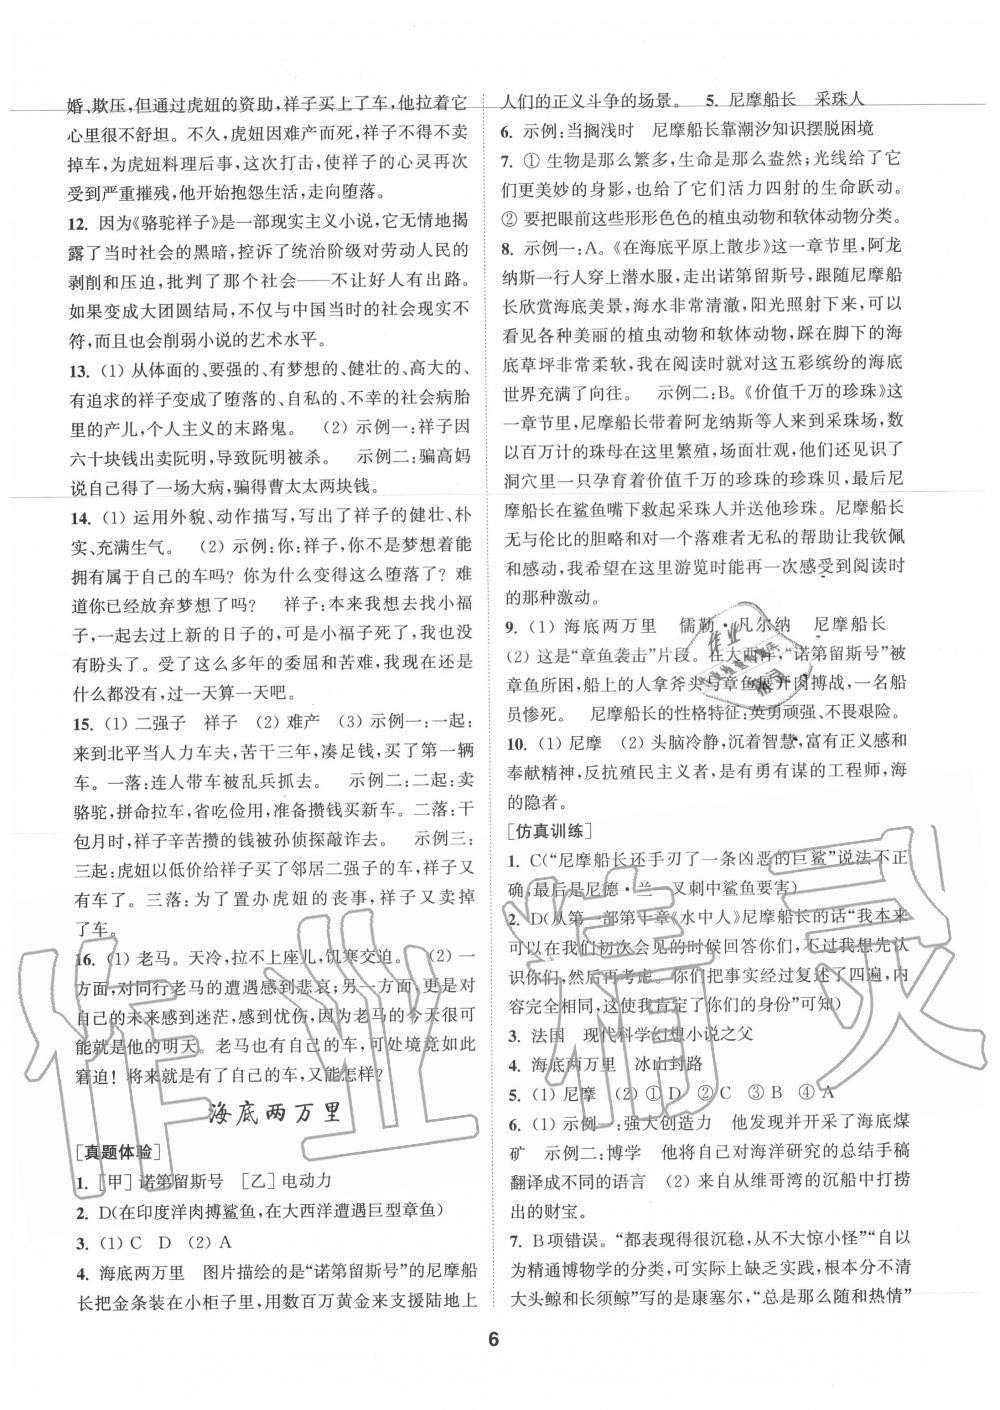 婚、欺压,但通过虎妞的资助,祥子买上了车,他拉着它
心里很不舒坦。不久,虎妞因难产而死,祥子不得不卖
掉车,为虎妞料理后事,这次打击,使祥子的心灵再次
受到严重摧残,他开始抱怨生活,走向堕落。
12. 因为《骆驼祥子》是一部现实主义小说,它无情地揭
露了当时社会的黑暗,控诉了统治阶级对劳动人民的
剥削和压迫,批判了那个社会——不让好人有出路。
如果变成大团圆结局,不仅与中国当时的社会现实不
符,而且也会削弱小说的艺术水平。
13. (1) 从体面的、要强的、有梦想的、健壮的、高大的、
有追求的祥子变成了堕落的、自私的、不幸的社会病胎
里的产儿,个人主义的末路鬼。 (2) 示例一:祥子因
六十块钱出卖阮明,导致阮明被杀。 示例二:骗高妈
说自己得了一场大病,骗得曹太太两块钱。
14. (1) 运用外貌、动作描写,写出了祥子的健壮、朴
实、充满生气。 (2) 示例:你:祥子,你不是梦想着能
拥有属于自己的车吗?你为什么变得这么堕落了?难
道你已经放弃梦想了吗? 祥子:本来我想去找小福
子,一起去过上新的日子的,可是小福子死了,我也没
有盼头了。受了这么多年的委屈和苦难,我现在还是
什么都没有,过一天算一天吧。
15. (1) 二强子 祥子 (2) 难产 (3) 示例一:一起:
来到北平当人力车夫,苦干三年,凑足钱,买了第一辆
车。一落:连人带车被乱兵抓去。 示例二:二起:卖
骆驼,拼命拉车,省吃俭用,准备攒钱买新车。二落:干
包月时,祥子辛苦攒的钱被孙侦探敲诈去。 示例三:
三起:虎妞以低价给祥子买了邻居二强子的车,祥子又
有车了。三落:为了置办虎妞的丧事,祥子又卖掉
了车。
16. (1) 老马。天冷,拉不上座儿,饥寒交迫。 (2) 一
方面,对同行老马的遭遇感到悲哀;另一方面,更是对
自己的未来感到迷茫,感到忧伤,因为老马的今天很可
能就是他的明天。老马也有自己的车,可处境竟如此
窘迫!将来就是有了自己的车,又能怎样?
海底两万里
[真题体验]
1. [甲] 诺第留斯号 [乙] 电动力
2. D(在印度洋肉搏鲨鱼,在大西洋遭遇巨型章鱼)
3. (1) C D (2) A
4. 海底两万里 图片描绘的是“诺第留斯号”的尼摩船
长把金条装在小柜子里,用数百万黄金来支援陆地上
人们的正义斗争的场景。 5. 尼摩船长 采珠人
6. 示例:当搁浅时 尼摩船长靠潮汐知识摆脱困境
7. ① 生物是那么繁多,生命是那么盎然;光线给了它
们更美妙的身影,也给了它们活力四射的生命跃动。
② 要把眼前这些形形色色的植虫动物和软体动物分类。
8. 示例一:A。《在海底平原上散步》这一章节里,阿龙
纳斯一行人穿上潜水服,走出诺第留斯号,跟随尼摩船
长欣赏海底美景,海水非常清澈,阳光照射下来,可以
看见各种美丽的植虫动物和软体动物,踩在脚下的海
底草坪非常柔软,我在阅读时就对这五彩缤纷的海底
世界充满了向往。 示例二:B。《价值千万的珍珠》这
一章节里,尼摩船长带着阿龙纳斯等人来到采珠场,数
以百万计的珠母在这里繁殖,场面壮观。他们还见识了
洞穴里一只孕育着价值千万的珍珠的珍珠贝,最后尼
摩船长在鲨鱼嘴下救起采珠人并送他珍珠。尼摩船长
无与伦比的胆略和对一个落难者无私的帮助让我钦佩
和感动,我希望在这里游览时能再一次感受到阅读时
的那种激动。
9. (1) 海底两万里 儒勒·凡尔纳 尼摩船长
(2) 这是“章鱼袭击”片段。在大西洋,“诺第留斯号”被
章鱼所困,船上的人拿斧头与章鱼展开肉搏战,一名船
员惨死。 尼摩船长的性格特征:英勇顽强、不畏艰险。
10. (1) 尼摩 (2) 头脑冷静,沉着智慧,富有正义感和
奉献精神,反抗殖民主义者,是有勇有谋的工程师,海
的隐者。
[仿真训练]
1. C(“尼摩船长还手刃了一条凶恶的巨鲨”说法不正
确,最后是尼德·兰一叉刺中鲨鱼要害)
2. D(从第一部第十章《水中人》尼摩船长的话“我本来
可以在我们初次会见的时候回答你们,不过我先要认
识你们,然后再考虑。你们把事实经过复述了四遍,内
容完全相同,这使我肯定了你们的身份”可知)
3. 法国 现代科学幻想小说之父
4. 海底两万里 冰山封路
5. (1) 尼摩 (2) ① D ② C ③ B ④ A
6. (1) 示例一:强大创造力 他发明并开采了海底煤
矿 示例二:博学 他将自己对海洋研究的总结手稿
翻译成不同的语言 (2) 来自从维哥湾的沉船中打捞
出的财宝。
7. B项错误。“都表现得很沉稳,从不大惊小怪”“自以
为精通博物学的分类,可实际上缺乏实践,根本分不清
大头鲸和长须鲸”写的是康塞尔,“总是那么随和热情”
6
作业精灵